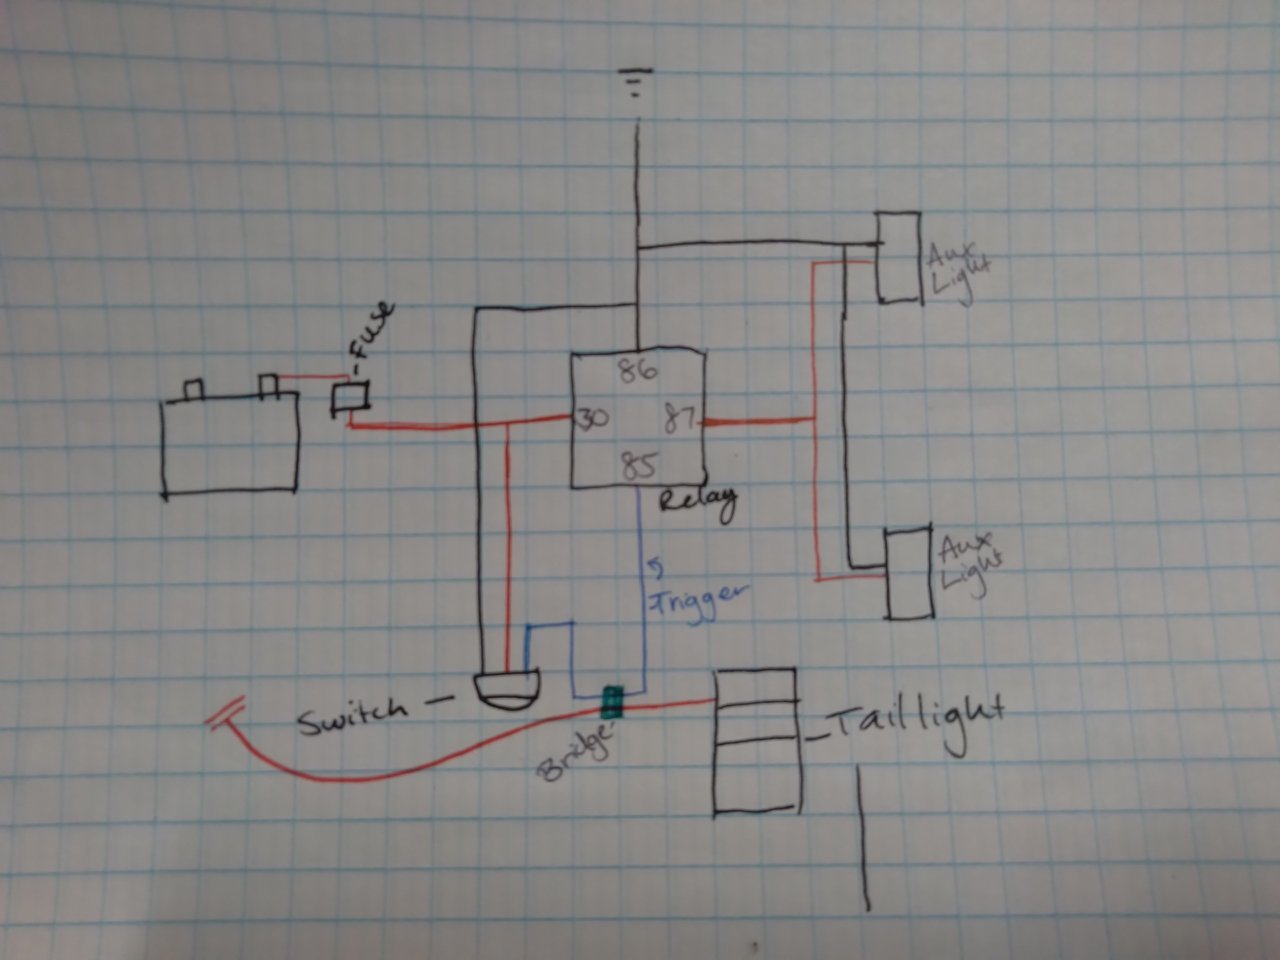 Fuse
Aux
Light
86
30
87
85
Relay
Aux
Light
Trigger
Switch
Bridge
Taillight